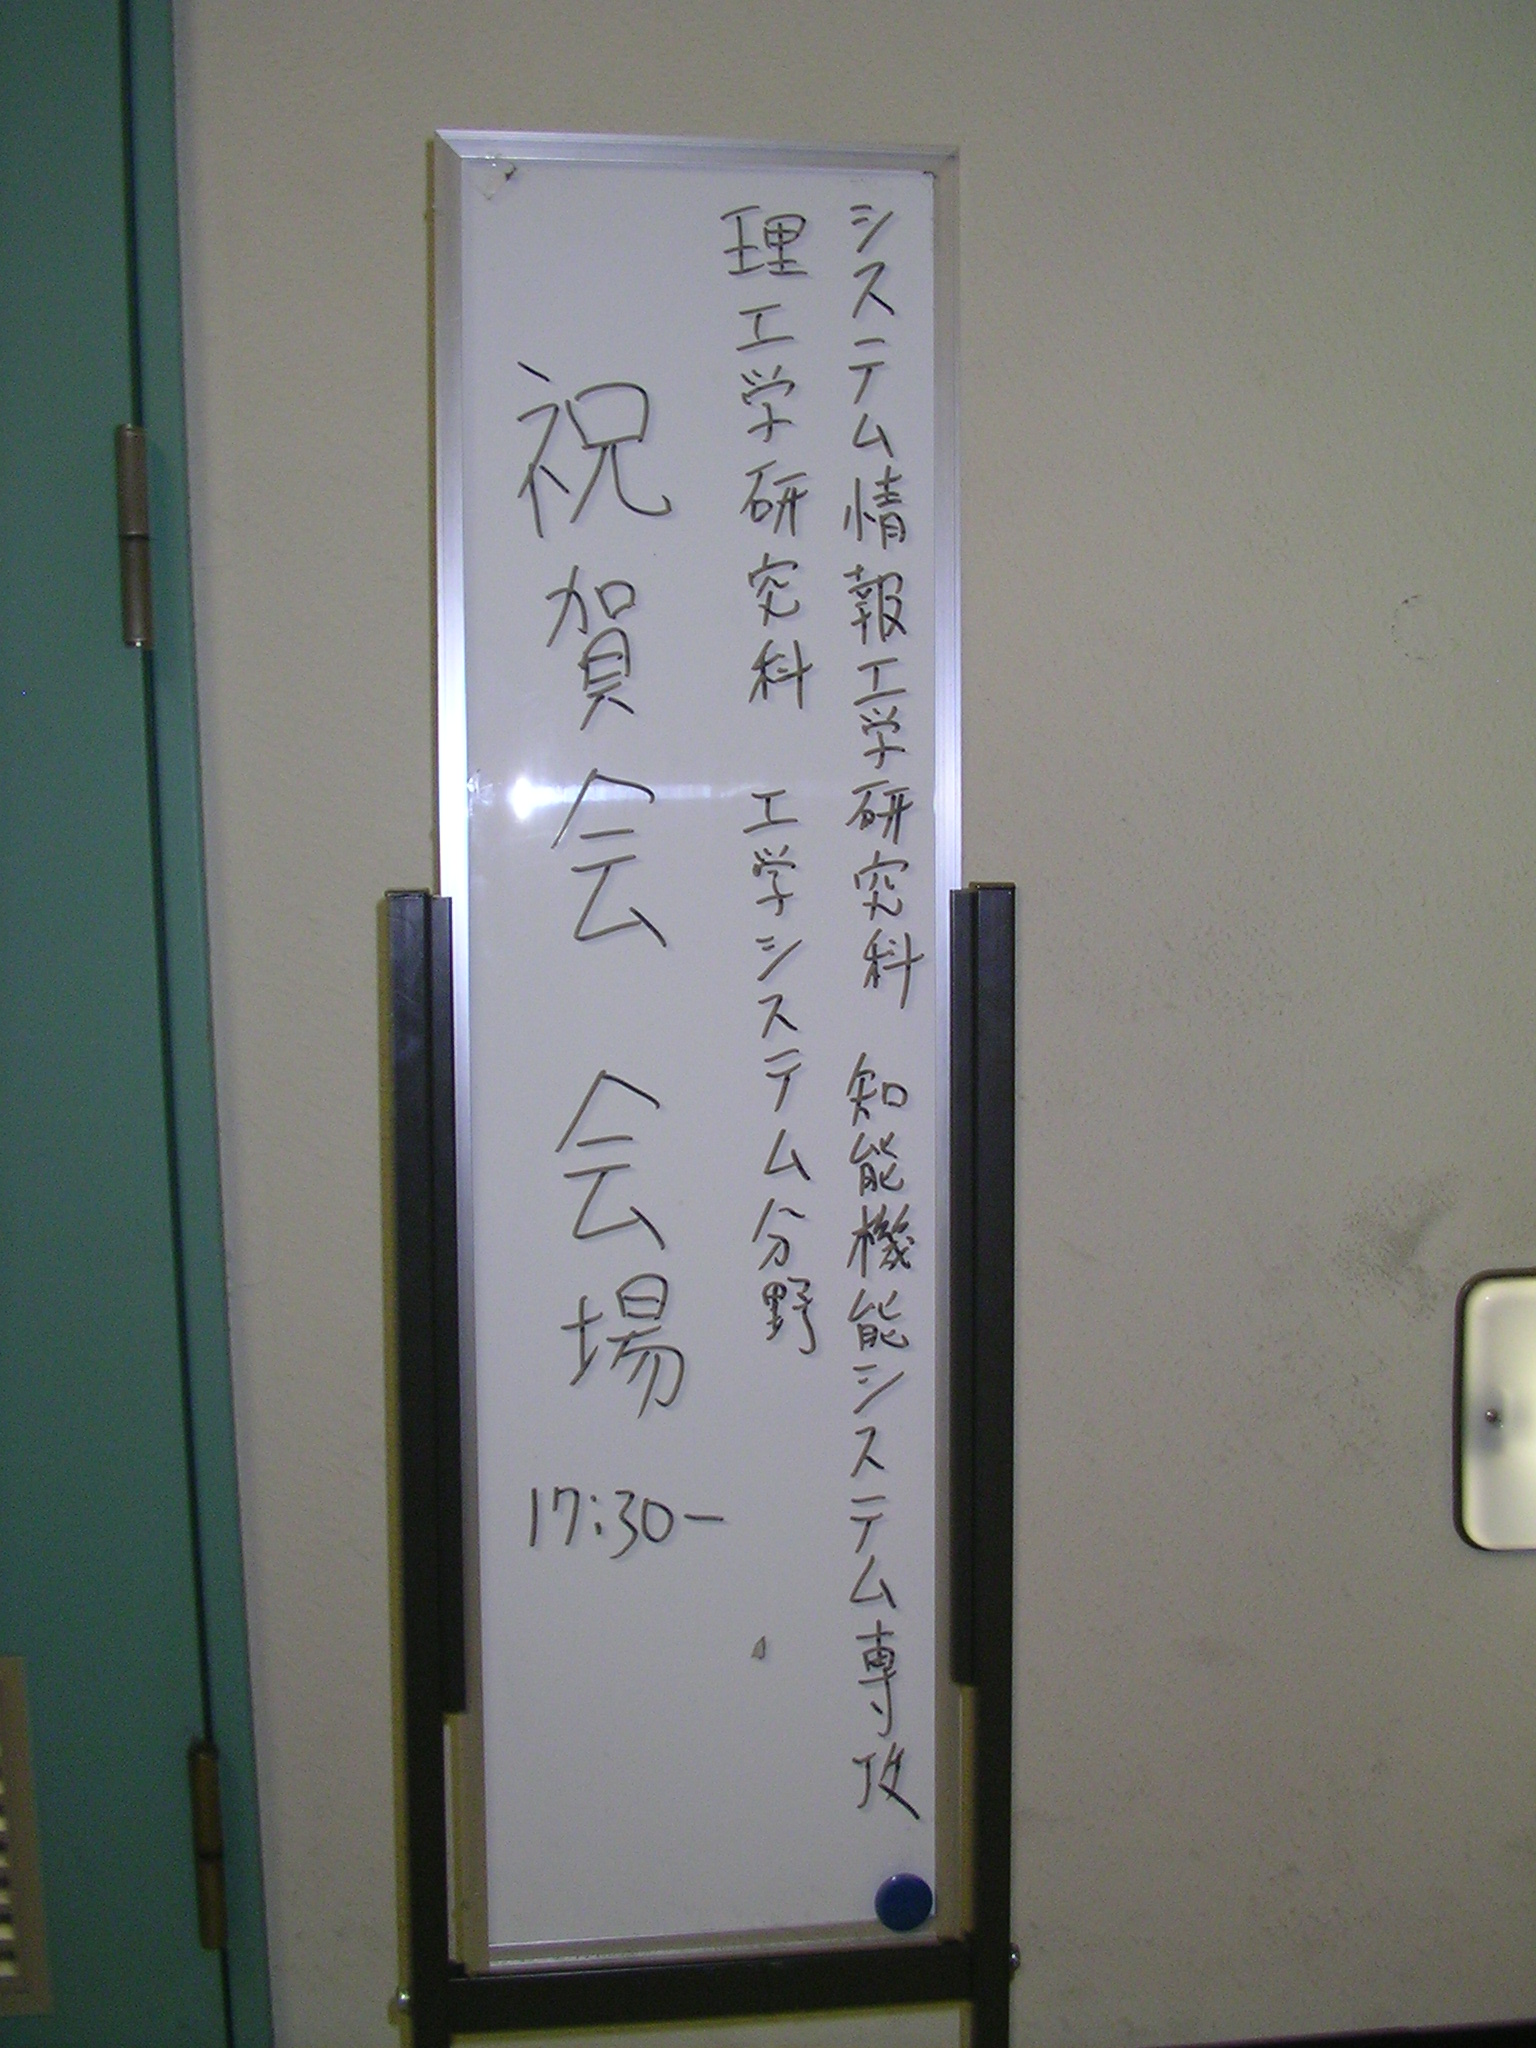 システム情報工学研究科 知能機能システム専攻
理工学研究科 工学システム分野
祝賀会 会場 17:30-